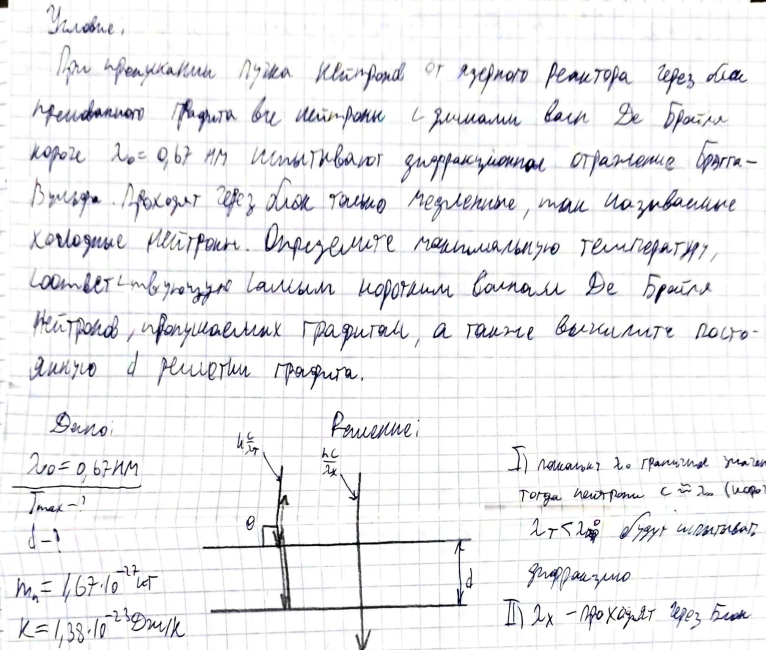 Условие.
При пропускании пучка нейтронов от ядерного реактора через блок
прессованного графита все нейтроны с длинами волн Де Бройля
короче λ₀ = 0,67 нм испытывают дифракционное отражение Брэгга-
Вульфа. Проходят через блок только медленные, так называемые
холодные нейтроны. Определите максимальную температуру,
соответствующую самым коротким волнам Де Бройля
нейтронов, пропускаемых графитом, а также вычислите посто-
янную d решетки графита.
Дано:
λ₀ = 0,67 нм
Tmax - ?
d - ?
mₙ = 1,67·10⁻²⁷ кг
K = 1,38·10⁻²³ Дж/К
Решение:
hc/λт
hc/λx
θ
d
I) поскольку λ₀ граничное значен
тогда нейтроны с ≈ λ₀
λт < λ₀ будут испытывать
дифракцию
II) λx - проходят через Блок